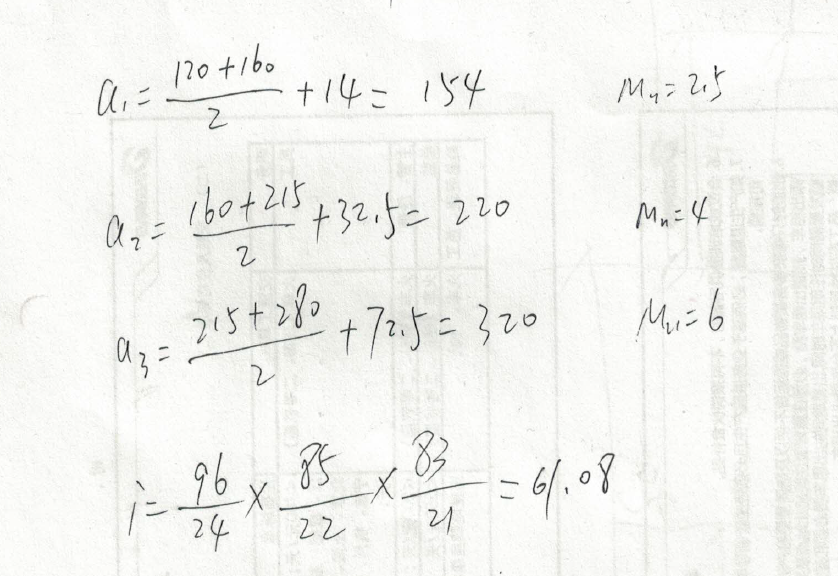 a₁ = (120+160)/2 + 14 = 154 Mn = 2.5
a₂ = (160+215)/2 + 32.5 = 220 Mn = 4
a₃ = (215+280)/2 + 72.5 = 320 Mn = 6
i = 96/24 × 85/22 × 83/21 = 61.08